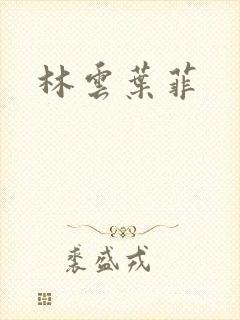 林雲葉菲
裘盛戎